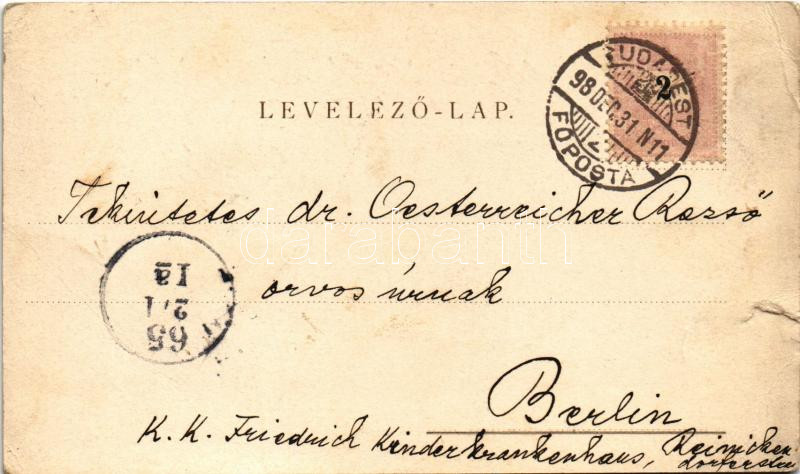 BUDAPEST
2
98 DEC.31 N11
FŐPOSTA
LEVELEZŐ-LAP.
Tekintetes dr. Oesterreicher Rezső
darabanth
orvos úrnak
2/1
Berlin
K. K. Friedrich Kinderkrankenhaus, Reinicken-